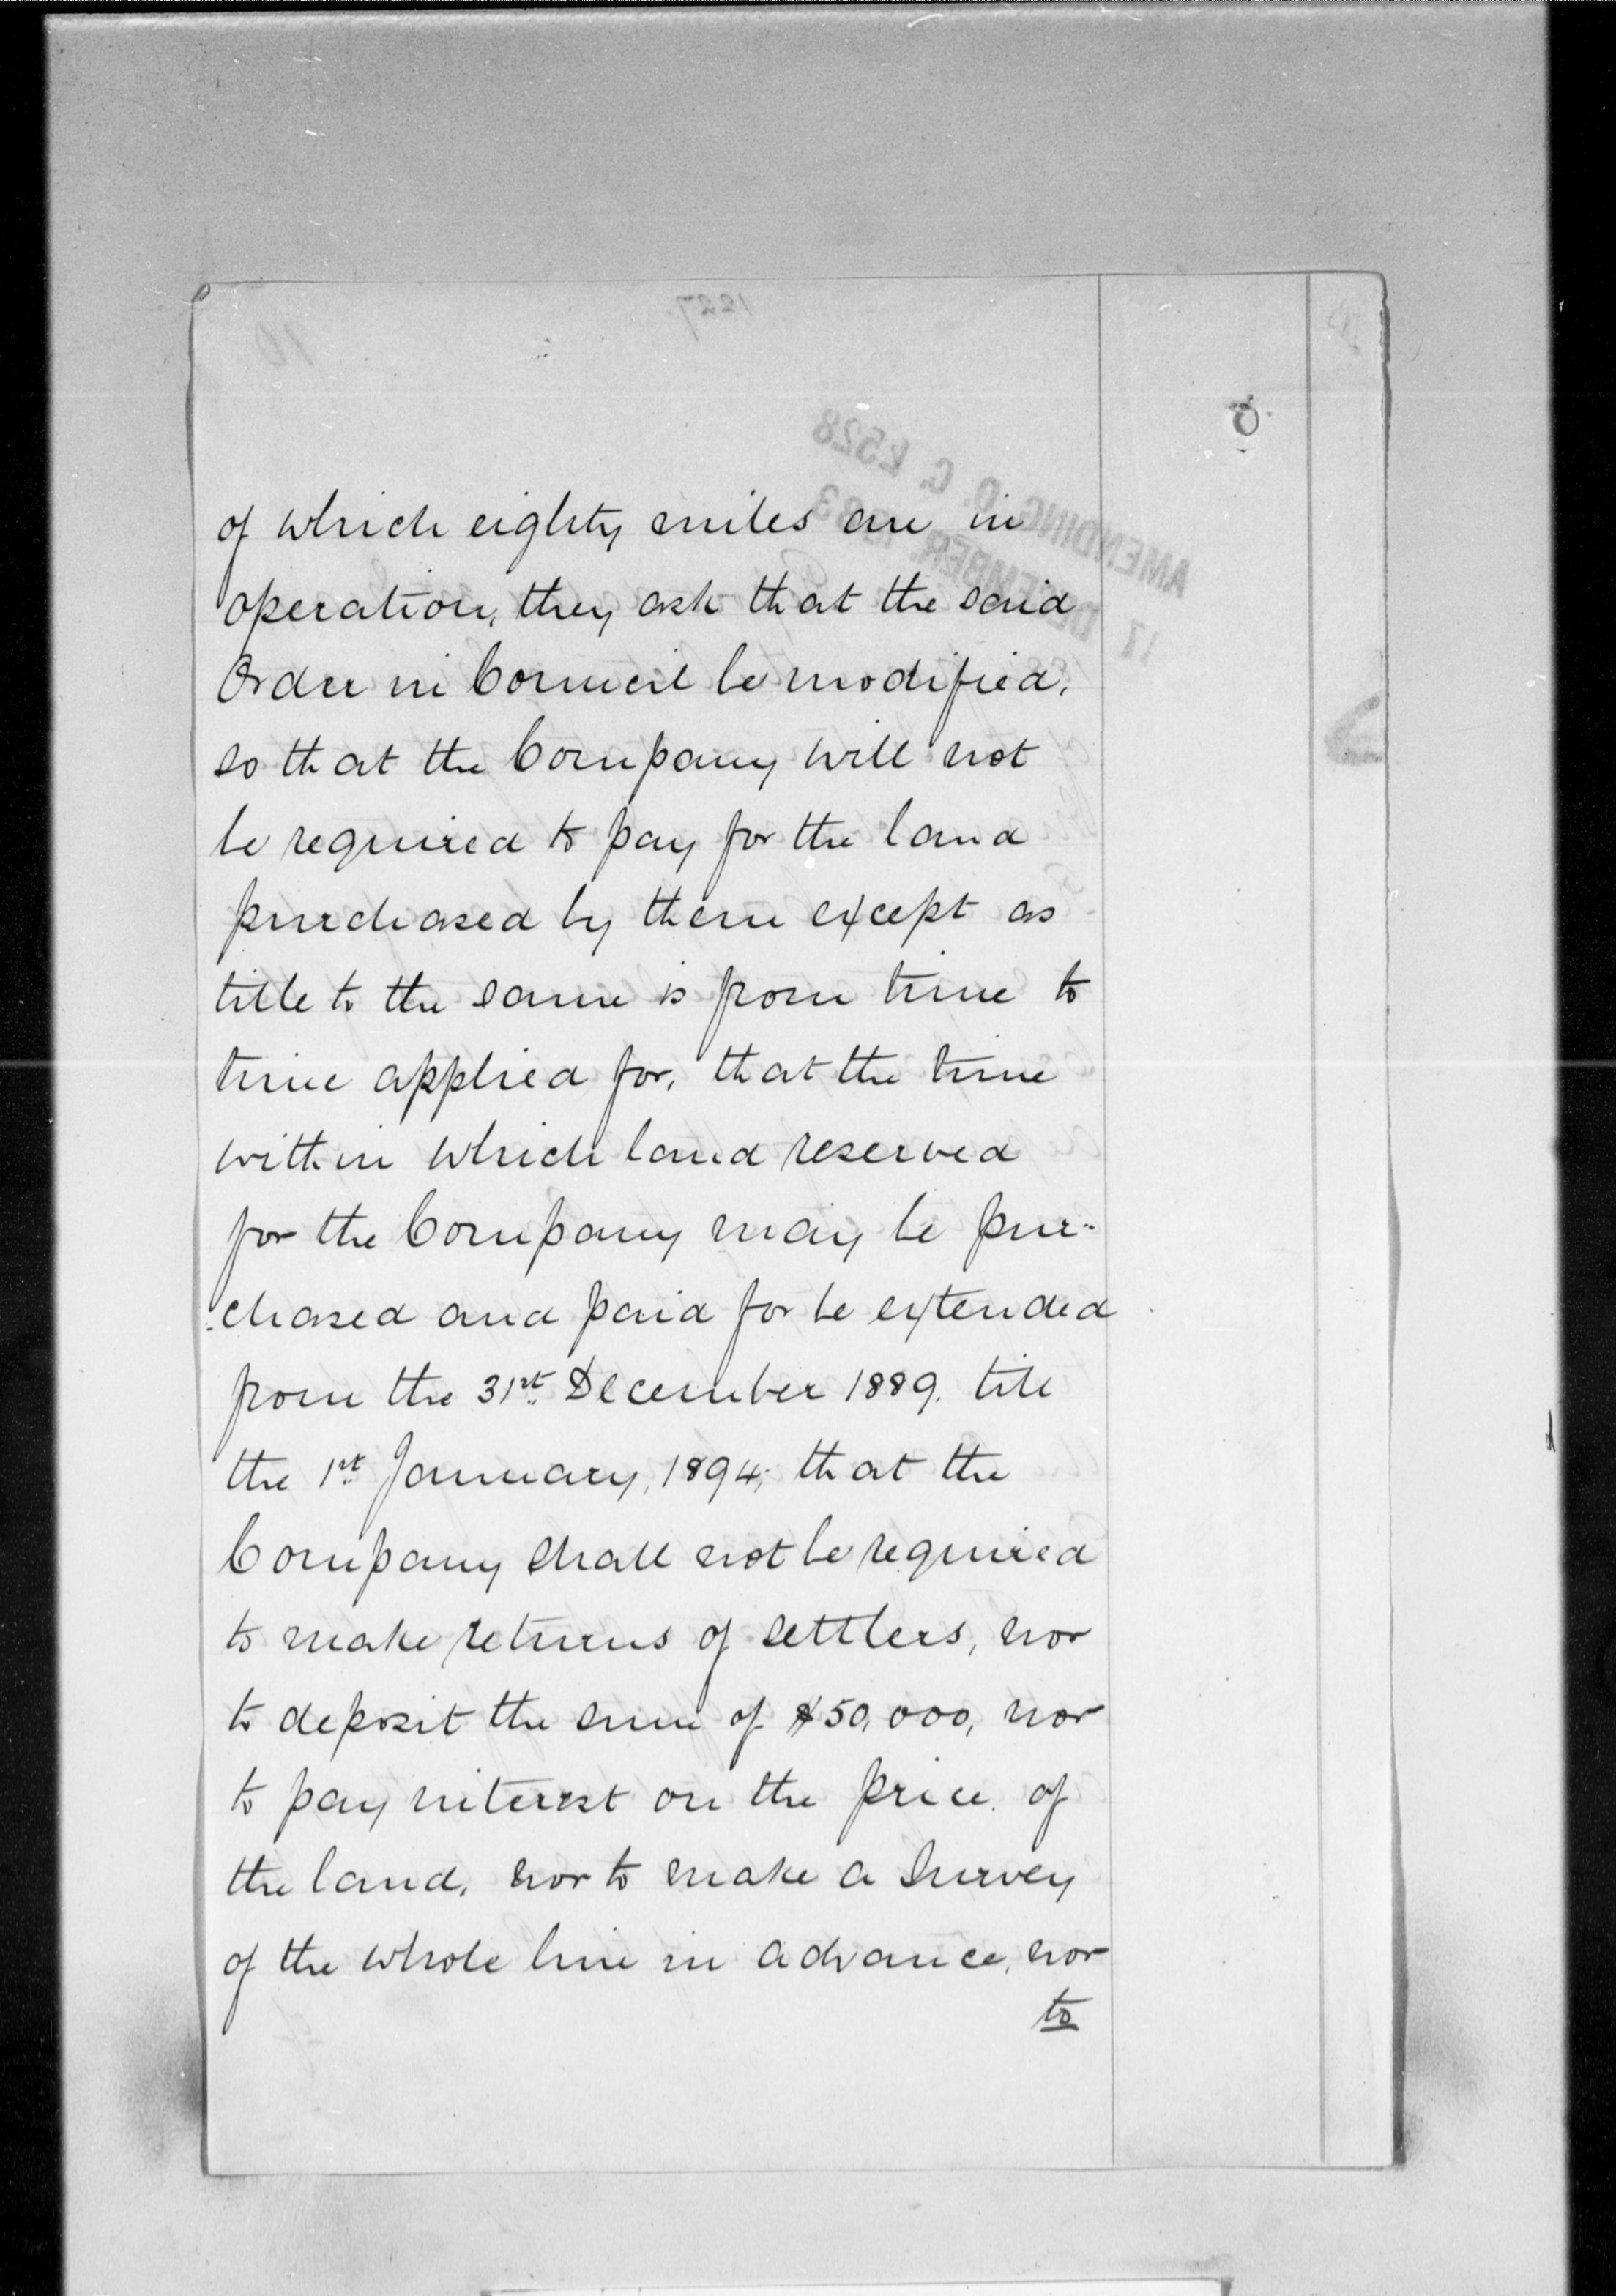 of which eighty miles are in
operation, they ask that the said
Order in Council be modified,
so that the Company will not
be required to pay for the land
purchased by them except as
title to the same is from time to
time applied for, that the time
within which land reserved
for the Company may be pur-
chased and paid for be extended
from the 31st December 1889. till
the 1st January, 1894; that the
Company shall not be required
to make returns of settlers, nor
to deposit the sum of $50,000, nor
to pay interest on the price of
the land, nor to make a survey
of the whole line in advance, nor
to